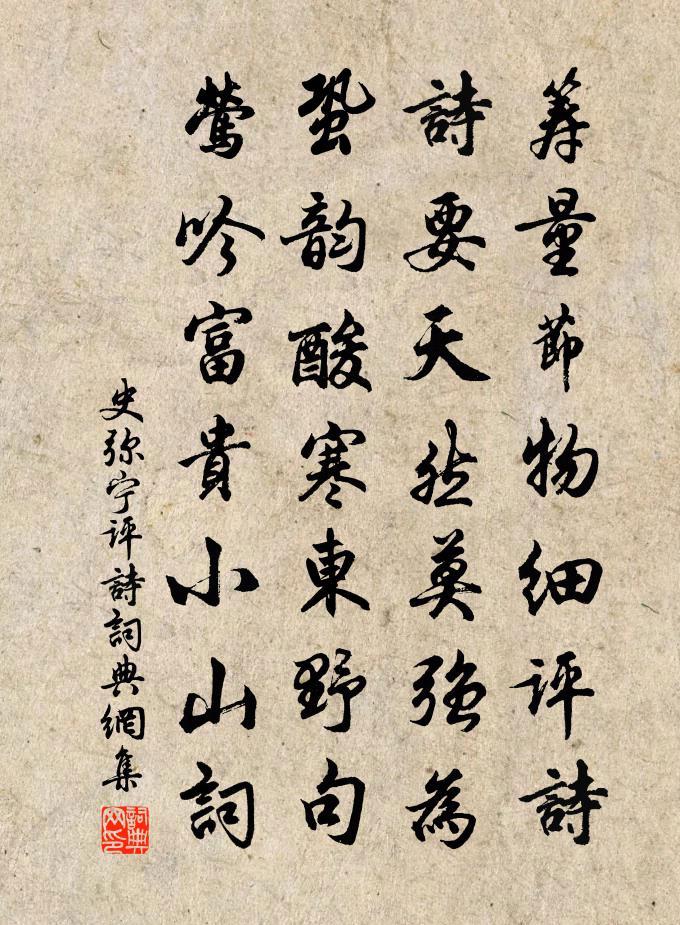 筭量節物細評詩
詩要天然莫強為
蛩韵酸寒東野句
鶯吟富貴小山詞
史弥宁评詩詞典網集
詞典网印